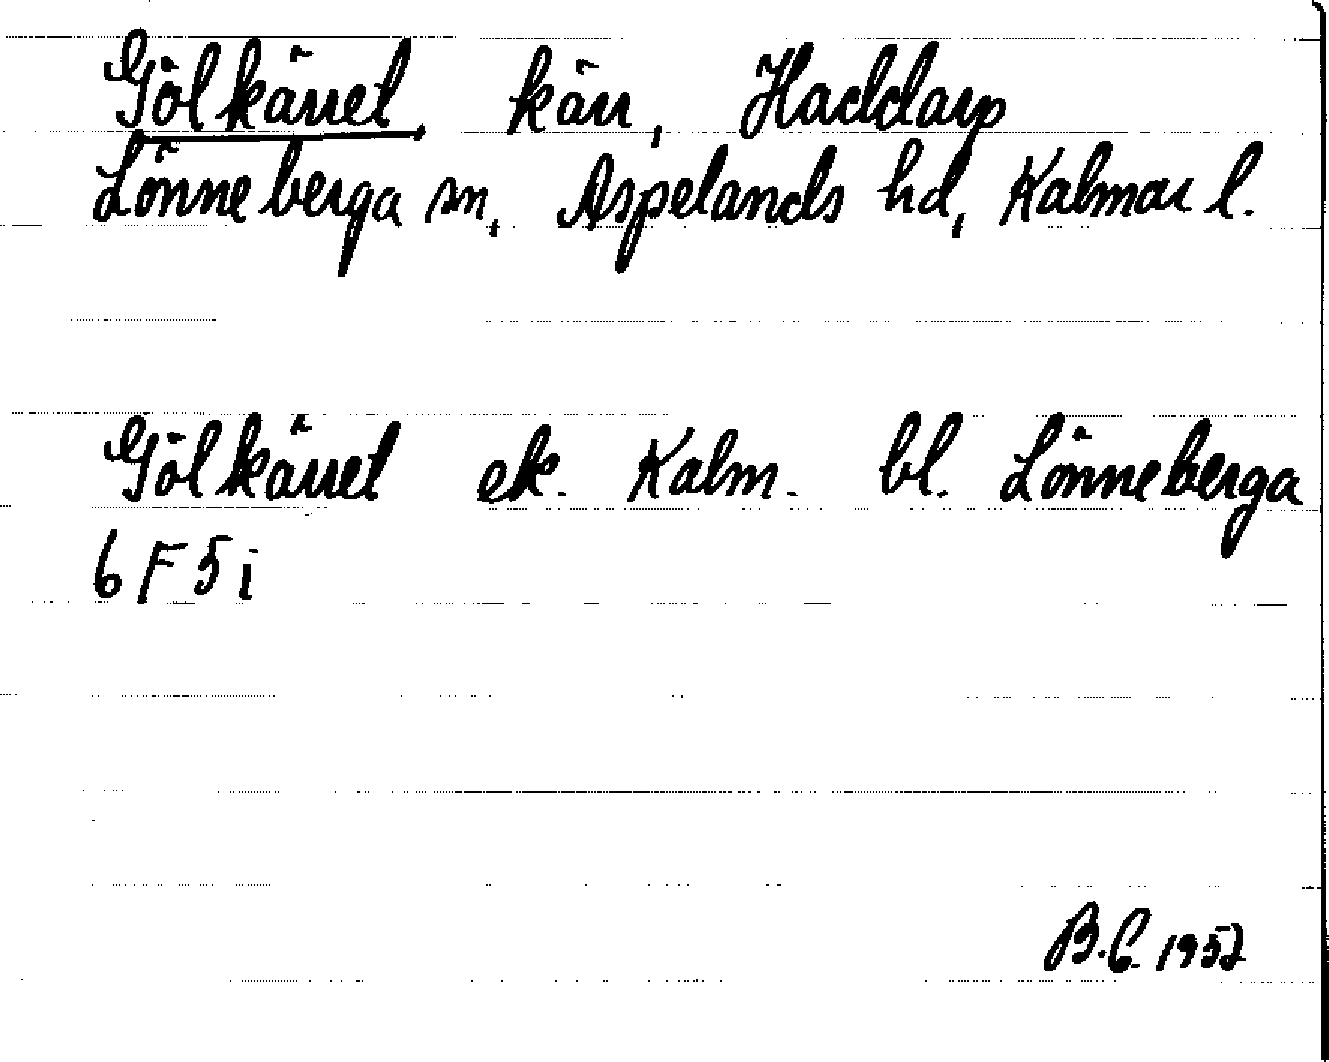 Gölkärret, kärr, Haddarp
Lönneberga sn, Aspelands hd, Kalmar l.
Gölkärret ek. Kalm. bl. Lönneberga
6 F 5 i
B.C. 1952